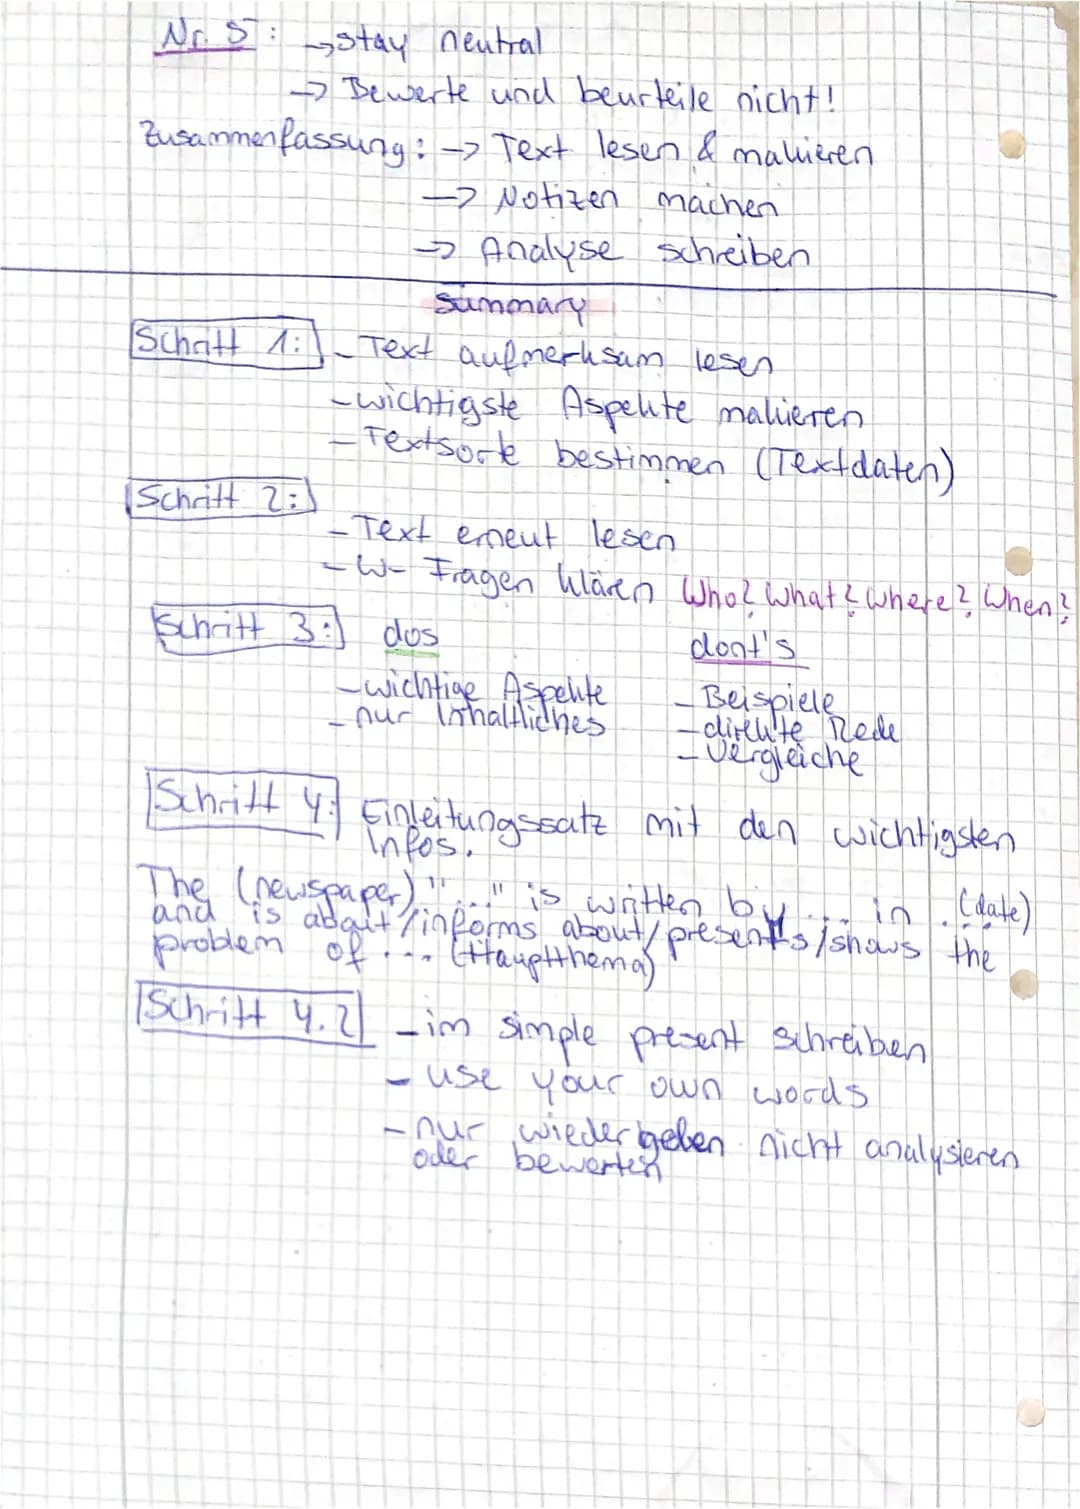 Nr. 5: → stay neutral
→ Bewerte und beurteile nicht!
Zusammenfassung: → Text lesen & makieren
→ Notizen machen
→ Analyse schreiben
Summary
Schritt 1: - Text aufmerksam lesen
- wichtigste Aspekte makieren
- Textsorte bestimmen (Textdaten)
Schritt 2:
- Text erneut lesen
- W- Fragen klären Who? What? Where? When?
Schritt 3: dos dont's
- wichtige Aspekte - Beispiele
- nur Inhaltliches - direkte Rede
- Vergleiche
Schritt 4: Einleitungssatz mit den wichtigsten
Infos.
The (newspaper) "..." is written by ... in . (date)
and is about/informs about/presents/shows the
problem of ... (Hauptthema)
Schritt 4.2 - im simple present schreiben
- use your own words
- nur wiedergeben nicht analysieren
oder bewerten